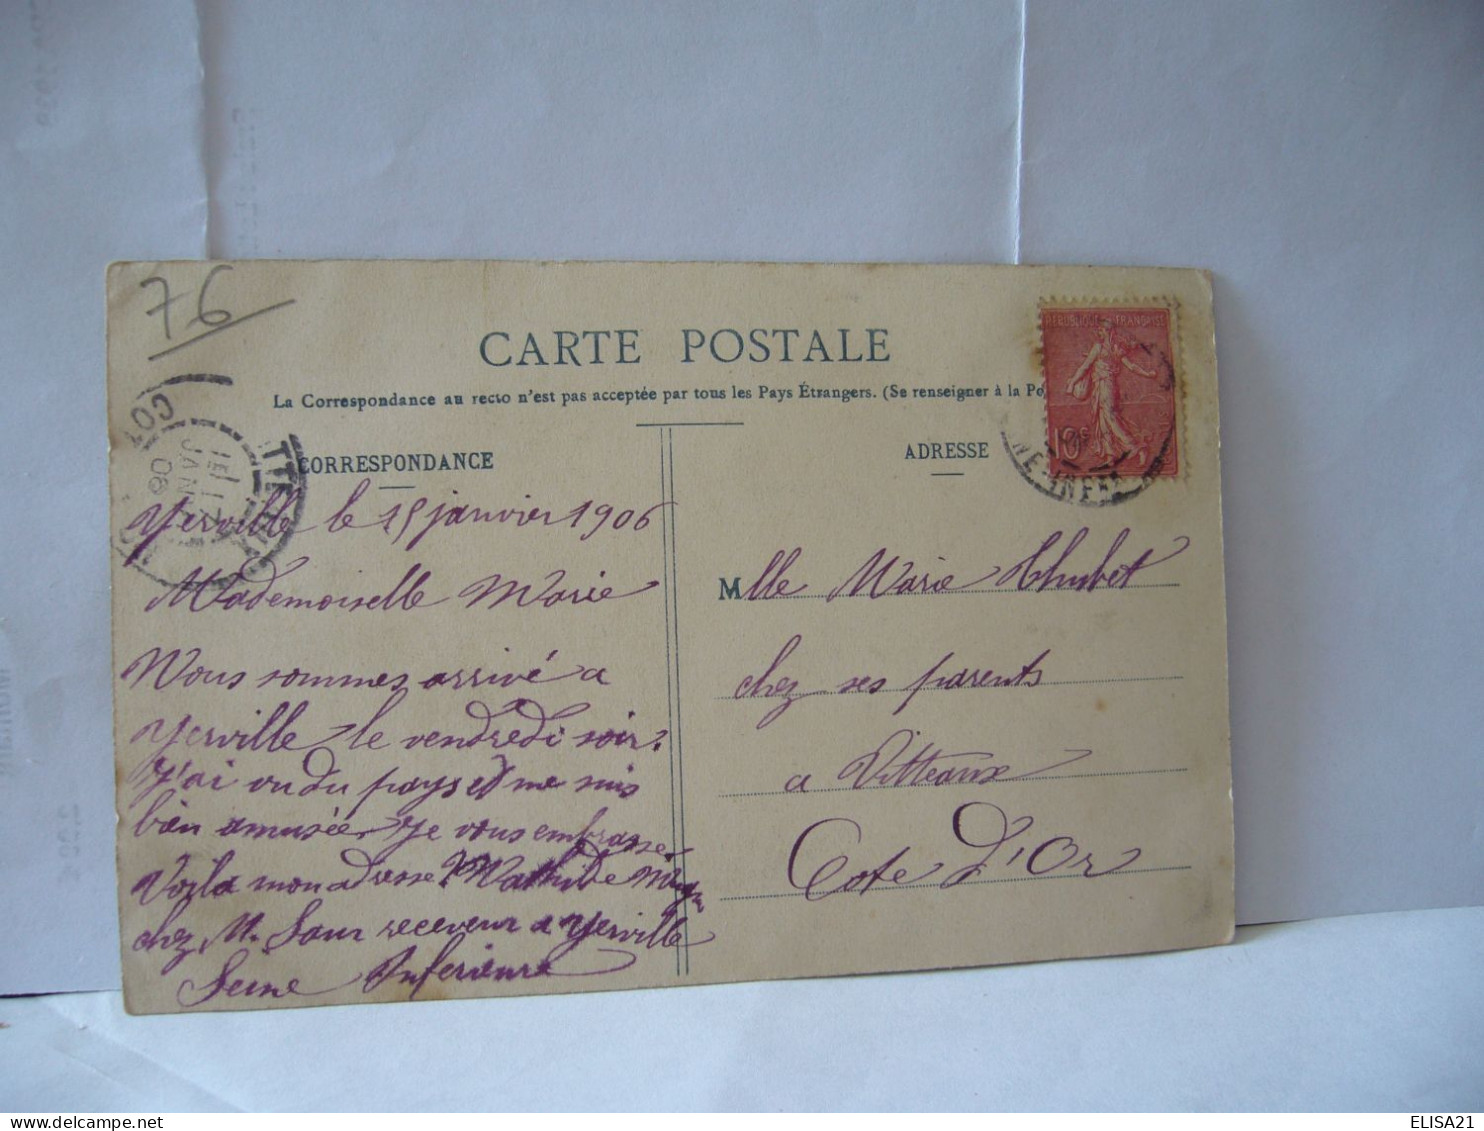 76
CARTE POSTALE
La Correspondance au recto n'est pas acceptée par tous les Pays Étrangers. (Se renseigner à la Po
CORRESPONDANCE
ADRESSE
REPUBLIQUE FRANÇAISE
10c
JANV
06
INFRE
Yerville le 15 janvier 1906
Mademoiselle Marie
Nous sommes arrivé a
Yerville le vendredi soir.
J'ai vu du pays et me suis
bien amusée. Je vous embrasse.
Voila mon adresse. Mathilde
chez M. Saur receveur a Yerville
Seine Inferieure
Mlle Marie Chubet
chez ses parents
a Vitteaux
Cote d'Or
ELISA21